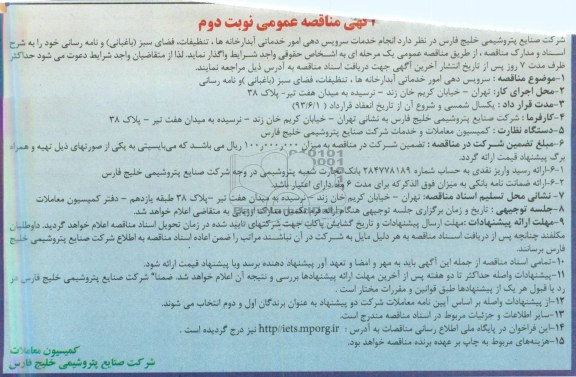 آگهی مناقصه عمومی نوبت دوم
شرکت صنایع پتروشیمی خلیج فارس در نظر دارد انجام خدمات سرویس دهی امور خدماتی آبدارخانه ها ، تنظیفات، فضای سبز (باغبانی) و نامه رسانی خود را به شرح
اسناد و مدارک مناقصه ، از طریق مناقصه عمومی یک مرحله ای به اشخاص حقوقی واجد شرایط واگذار نماید. لذا از متقاضیان واجد شرایط دعوت می شود حداکثر
ظرف مدت ۷ روز پس از تاریخ انتشار آخرین آگهی جهت دریافت اسناد مناقصه به آدرس ذیل مراجعه نمایند.
۱-موضوع مناقصه : سرویس دهی امور خدماتی آبدارخانه ها ، تنظیفات، فضای سبز (باغبانی )و نامه رسانی
۲-محل اجرای کار: تهران – خیابان کریم خان زند – نرسیده به میدان هفت تیر – پلاک ۳۸
۳-مدت قرار داد : یکسال شمسی و شروع آن از تاریخ انعقاد قرارداد ( ۹۳/۶/۱)
۴-کارفرما : شرکت صنایع پتروشیمی خلیج فارس به نشانی تهران – خیابان کریم خان زند – نرسیده به میدان هفت تیر – پلاک ۳۸
۵-دستگاه نظارت : کمیسیون معاملات و خدمات شرکت صنایع پتروشیمی خلیج فارس
۶-مبلغ تضمین شرکت در مناقصه : تضمین شرکت در مناقصه به میزان ۱۰۰٫۰۰۰٫۰۰۰ ریال می باشد که می‌بایستی به یکی از صورتهای ذیل تهیه و همراه
برگ پیشنهاد قیمت ارائه گردد.
۶-۱-ارائه رسید واریز نقدی به حساب شماره ۲۸۴۷۷۸۱۸۹ بانک تجارت شعبه پتروشیمی در وجه شرکت صنایع پتروشیمی خلیج فارس
۶-۲-ارائه ضمانت نامه بانکی به میزان فوق الذکر که برای مدت ۶ ماه دارای اعتبار باشد.
۷- نشانی محل تسلیم اسناد مناقصه: تهران – خیابان کریم خان زند – نرسیده به میدان هفت تیر –پلاک ۳۸ طبقه یازدهم – دفتر کمیسیون معاملات
۸-جلسه توجیهی : تاریخ و زمان برگزاری جلسه توجیهی هنگام ارائه به متقاضی اعلام خواهد شد.
۹-مهلت ارائه پیشنهادات :مهلت ارسال پیشنهادات و تاریخ گشایش پاکات جهت شرکتهای تایید شده در زمان تحویل اسناد مناقصه اعلام خواهد گردید. داوطلبان
مکلفند چنانچه پس از دریافت اسناد مناقصه به هر دلیل مایل به شرکت در آن نباشند مراتب را ضمن اعاده اسناد مناقصه به اطلاع شرکت صنایع پتروشیمی خلیج
فارس برسانند.
۱۰-تمامی اسناد مناقصه از جمله این آگهی باید به مهر و امضا و تعهد آور پیشنهاد دهنده برسد وبا پیشنهاد قیمت ارائه شود.
۱۱-پیشنهادات واصله حداکثر تا دو هفته پس از آخرین مهلت ارائه پیشنهادها بررسی و نتیجه آن اعلام خواهد شد. ضمنا" شرکت صنایع پتروشیمی خلیج فارس در
رد یا قبول هر یک از پیشنهادها طبق قوانین و مقررات مختار است .
۱۲-از پیشنهادات واصله بر اساس آیین نامه معاملات شرکت دو پیشنهاد به عنوان برندگان اول و دوم انتخاب می شوند.
۱۳-سایر اطلاعات و جزئیات مربوط در اسناد مناقصه مندرج است.
۱۴-این فراخوان در پایگاه ملی اطلاع رسانی مناقصات به آدرس : http//iets.mporg.ir نیز درج گردیده است .
۱۵-هزینه‌های مربوط به چاپ بر عهده برنده مناقصه خواهد بود.
کمیسیون معاملات
شرکت صنایع پتروشیمی خلیج فارس